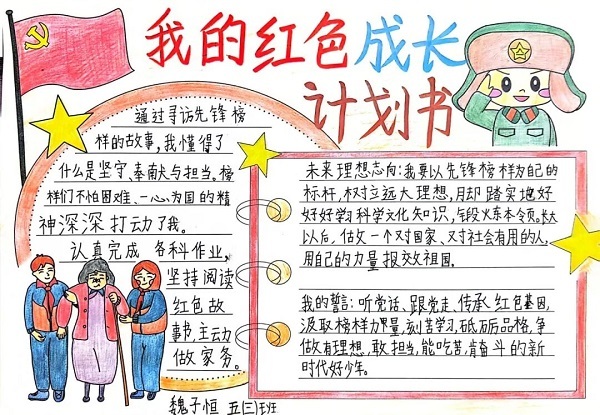 我的红色成长
计划书
通过寻访先锋榜
样的故事,我懂得了
什么是坚守、奉献与担当。榜
样们不怕困难、一心为国的精
神深深打动了我。
认真完成各科作业,
坚持阅读
红色故
事书,主动
做家务。
未来理想志向:我要以先锋榜样为自己的
标杆,树立远大理想,脚踏实地好
好好学习科学文化知识,锻炼本领。长大
以后,做一个对国家、对社会有用的人,
用自己的力量报效祖国。
我的誓言:听党话、跟党走、传承红色基因,
汲取榜样力量,刻苦学习,砥砺品格,争
做有理想、敢担当,能吃苦,肯奋斗的新
时代好少年。
魏子恒 五(三)班